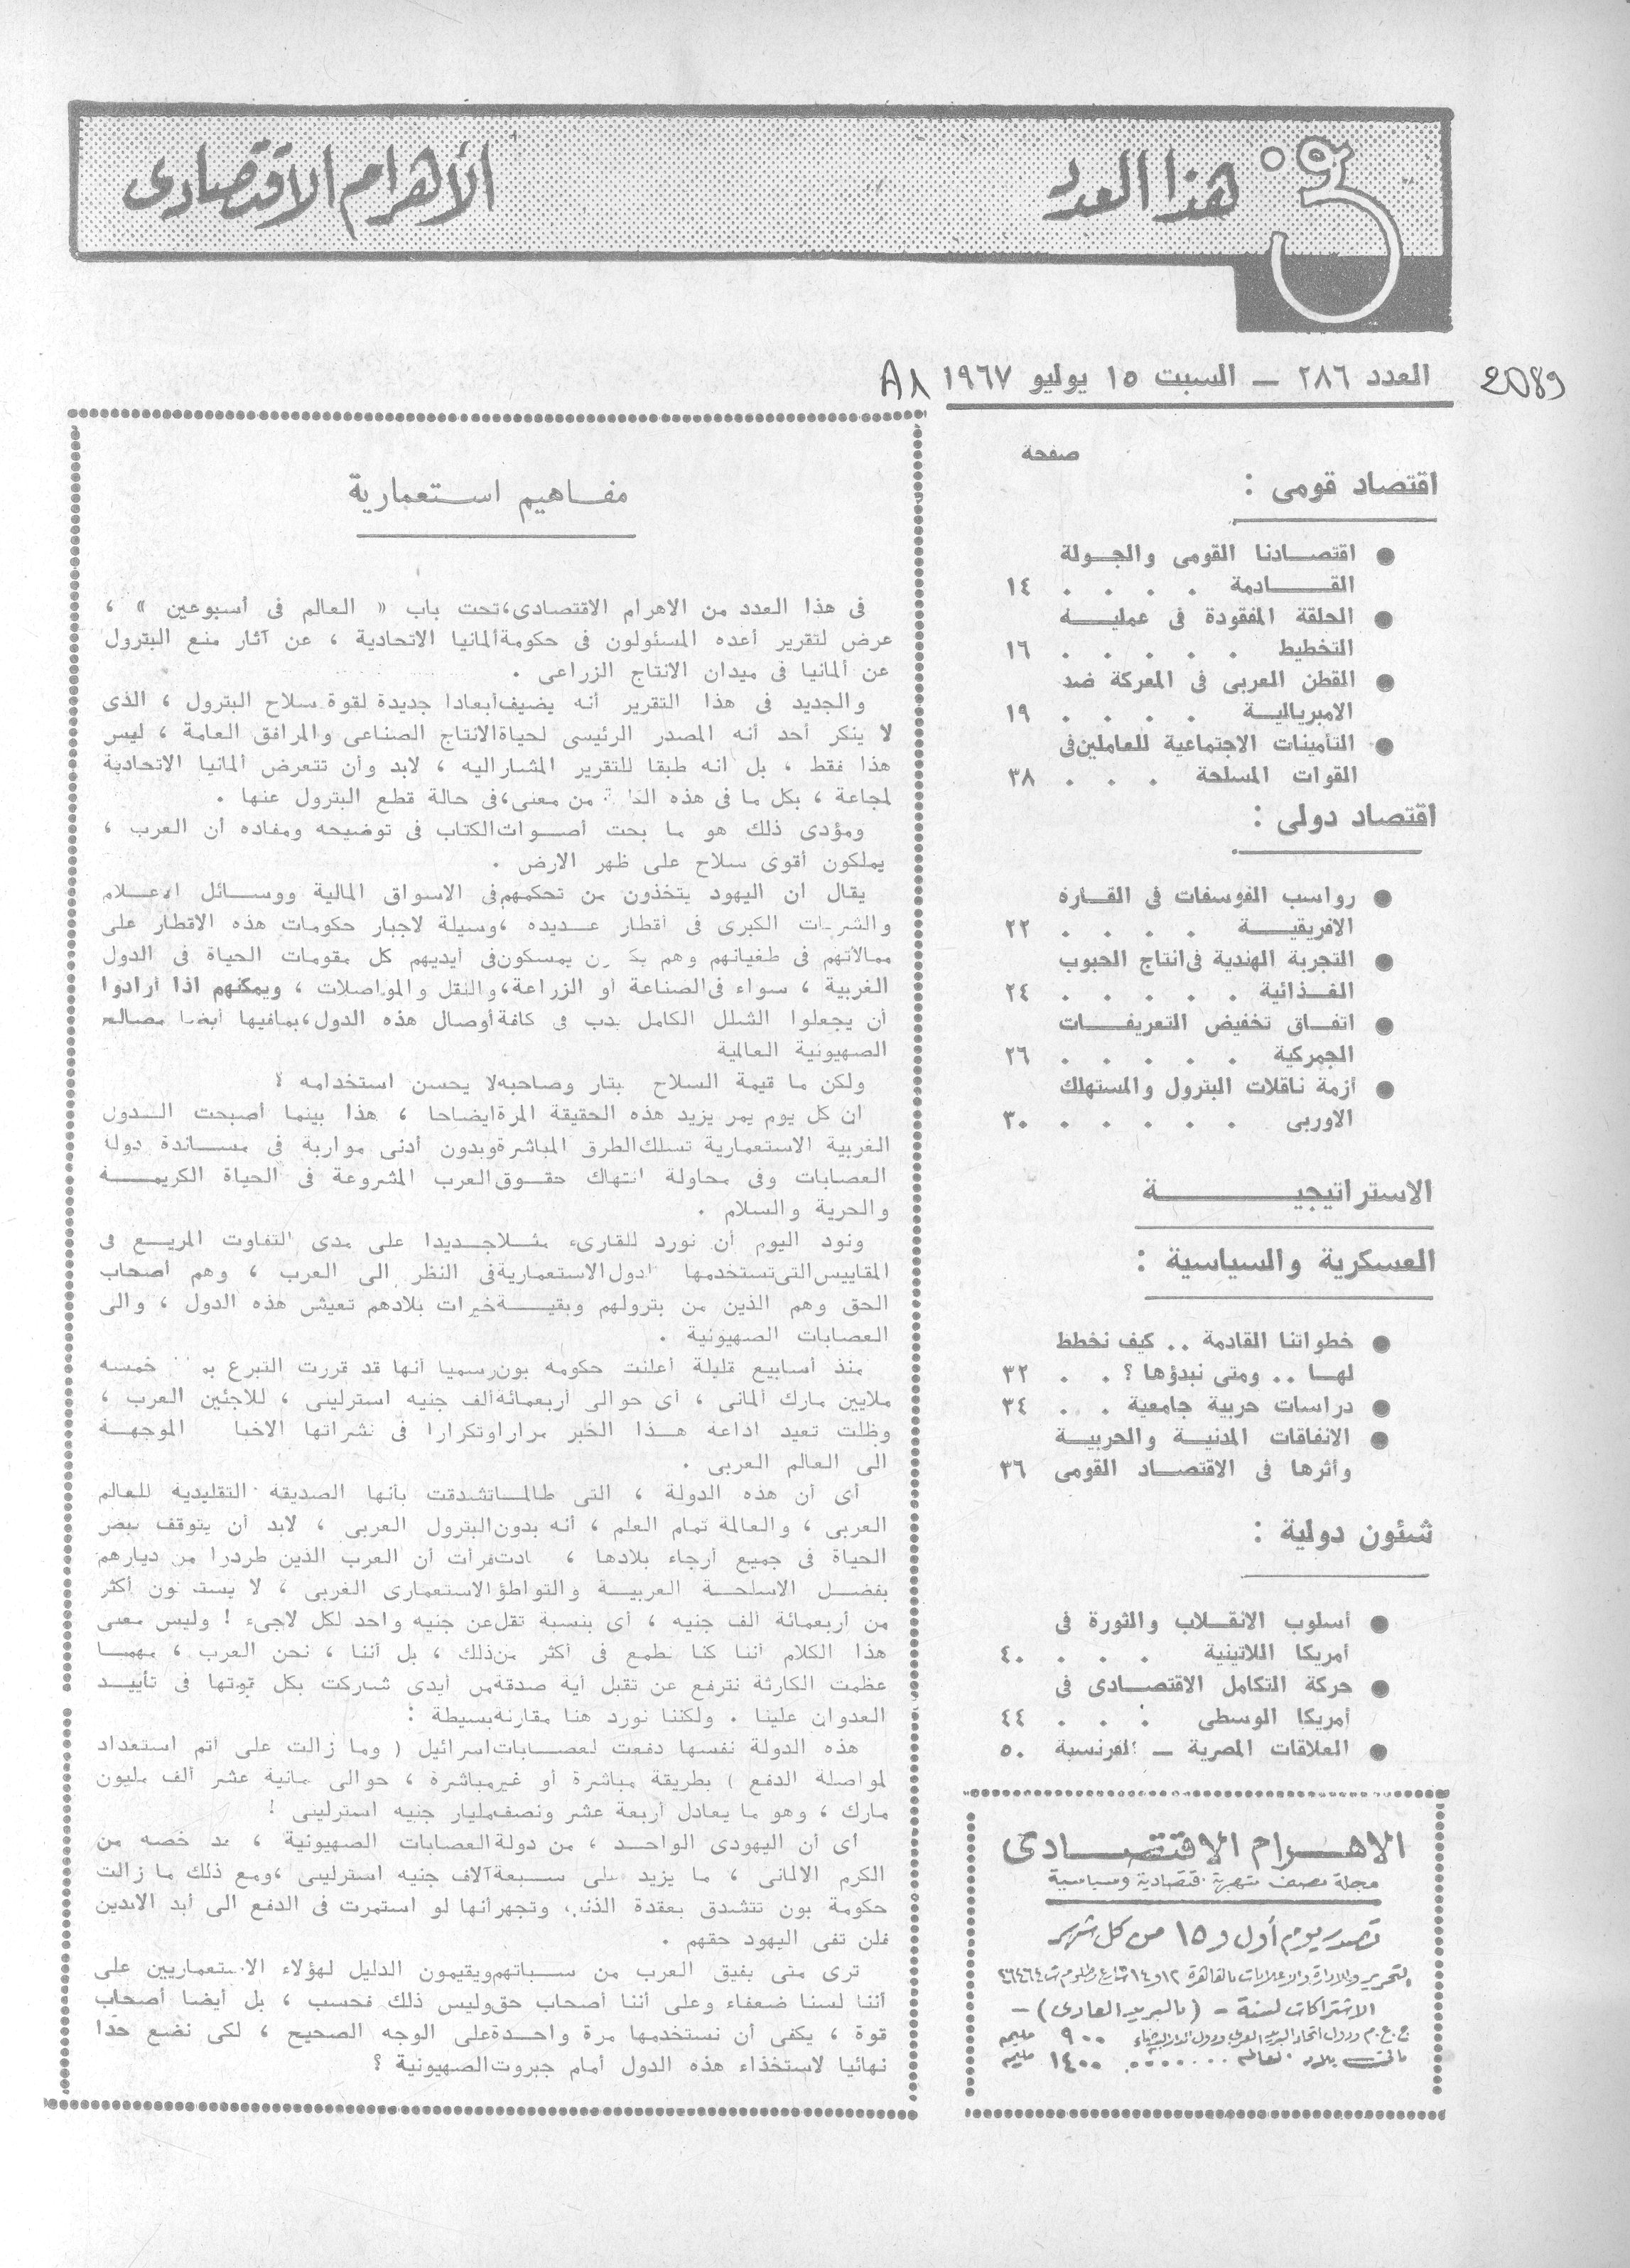 فى هذا العدد
الأهرام الاقتصادى
العدد ٢٨٦ ــ السبت ١٥ يوليو ١٩٦٧
2089
A٨
صفحة
اقتصاد قومى :
● اقتصادنا القومى والجولة
القادمة . . . . ١٤
● الحلقة المفقودة فى عملية
التخطيط . . . . . ١٦
● القطن العربى فى المعركة ضد
الامبريالية . . . . ١٩
● التأمينات الاجتماعية للعاملين فى
القوات المسلحة . . . ٣٨
اقتصاد دولى :
● رواسب الفوسفات فى القارة
الافريقية . . . . ٢٢
● التجربة الهندية فى انتاج الحبوب
الغذائية . . . . . ٢٤
● اتفاق تخفيض التعريفات
الجمركية . . . . . ٢٦
● أزمة ناقلات البترول والمستهلك
الاوربى . . . . . . ٣٠
الاستراتيجية
العسكرية والسياسية :
● خطواتنا القادمة .. كيف نخطط
لها .. ومتى نبدؤها ؟ . . ٣٢
● دراسات حربية جامعية . . ٣٤
● الانفاقات المدنية والحربية
وأثرها فى الاقتصاد القومى ٣٦
شئون دولية :
● أسلوب الانقلاب والثورة فى
أمريكا اللاتينية . . . ٤٠
● حركة التكامل الاقتصادى فى
أمريكا الوسطى . . . ٤٤
● العلاقات المصرية ــ الفرنسية ٥٠
الاهرام الاقتصادى
مجلة نصف شهرية اقتصادية وسياسية
تصدر يوم أول و ١٥ من كل شهر
التحرير والادارة والاعلانات بالقاهرة ١٢ و ١٤ شارع مظلوم ت ٢٦٤٦٤
الاشتراكات لسنة - (بالبريد العادى) -
ج.ع.م ودول اتحاد البريد العربى ودول الدار البيضاء ٩٠٠ مليم
باقى بلاد العالم ........ ١٤٠٠ مليم
مفاهيم استعمارية
فى هذا العدد من الاهرام الاقتصادى، تحت باب « العالم فى أسبوعين » ،
عرض لتقرير أعده المسئولون فى حكومة ألمانيا الاتحادية ، عن آثار منع البترول
عن ألمانيا فى ميدان الانتاج الزراعى .
والجديد فى هذا التقرير أنه يضيف أبعادا جديدة لقوة سلاح البترول ، الذى
لا ينكر أحد أنه المصدر الرئيسى لحياة الانتاج الصناعى والمرافق العامة ، ليس
هذا فقط ، بل انه طبقا للتقرير المشار اليه ، لابد وأن تتعرض ألمانيا الاتحادية
لمجاعة ، بكل ما فى هذه من معنى، فى حالة قطع البترول عنها .
ومؤدى ذلك هو ما بحت أصوات الكتاب فى توضيحه ومفاده أن العرب ،
يملكون أقوى سلاح على ظهر الارض .
يقال ان اليهود يتخذون من تحكمهم فى الاسواق المالية ووسائل الاعلام
والشركات الكبرى فى أقطار عديده ، وسيلة لاجبار حكومات هذه الاقطار على
ممالأتهم فى طغيانهم وهم يمسكون فى أيديهم كل مقومات الحياة فى الدول
الغربية ، سواء فى الصناعة أو الزراعة، والنقل والمواصلات ، ويمكنهم اذا أرادوا
أن يجعلوا الشلل الكامل يدب فى كافة أوصال هذه الدول، بما فيها أيضا مصالح
الصهيونية العالمية
ولكن ما قيمة السلاح بتار وصاحبه لا يحسن استخدامه ؟
ان كل يوم يمر يزيد هذه الحقيقة المرة ايضاحا ، هذا بينما أصبحت الدول
الغربية الاستعمارية تسلك الطرق المباشرة وبدون أدنى مواربة فى مساندة دولة
العصابات وفى محاولة انتهاك حقوق العرب المشروعة فى الحياة الكريمة
والحرية والسلام .
ونود اليوم أن نورد للقارىء مثلا جديدا على مدى التفاوت المريع فى
المقاييس التى تستخدمها الدول الاستعمارية فى النظر الى العرب ، وهم أصحاب
الحق وهم الذين من بترولهم وبقية خيرات بلادهم تعيش هذه الدول ، والى
العصابات الصهيونية .
منذ أسابيع قليلة أعلنت حكومة بون رسميا أنها قد قررت التبرع خمسه
ملايين مارك ألمانى ، أى حوالى أربعمائة ألف جنيه استرلينى ، للاجئين العرب ،
وظلت تعيد اذاعة هذا الخبر مرارا وتكرارا فى نشراتها الموجهة
الى العالم العربى .
أى أن هذه الدولة ، التى طالما تشدقت بأنها الصديقة التقليدية للعالم
العربى ، والعالمة تمام العلم ، أنه بدون البترول العربى ، لابد أن يتوقف نبض
الحياة فى جميع أرجاء بلادها ، أن العرب الذين طردوا من ديارهم
بفضل الاسلحة العربية والتواطؤ الاستعمارى الغربى ، لا أكثر
من أربعمائة ألف جنيه ، أى بنسبة تقل عن جنيه واحد لكل لاجىء ! وليس معنى
هذا الكلام أننا كنا نطمع فى أكثر من ذلك ، بل أننا ، نحن العرب ، مهما
عظمت الكارثة نترفع عن تقبل أية صدقة من أيدى شاركت بكل قوتها فى تأييد
العدوان علينا . ولكننا نورد هنا مقارنة بسيطة :
هذه الدولة نفسها دفعت لعصابات اسرائيل ( وما زالت على أتم استعداد
لمواصلة الدفع ) بطريقة مباشرة أو غير مباشرة ، حوالى ثمانية عشر ألف مليون
مارك ، وهو ما يعادل أربعة عشر ونصف مليار جنيه استرلينى !
أى أن اليهودى الواحد ، من دولة العصابات الصهيونية ، قد خصه من
الكرم الالمانى ، ما يزيد على سبعة آلاف جنيه استرلينى ، ومع ذلك ما زالت
حكومة بون تتشدق بعقدة الذنب، وتجهر أنها لو استمرت فى الدفع الى أبد الآبدين
فلن تفى اليهود حقهم .
ترى متى يفيق العرب من سباتهم ويقيمون الدليل لهؤلاء الاستعماريين على
أننا لسنا ضعفاء وعلى أننا أصحاب حق وليس ذلك فحسب ، بل أيضا أصحاب
قوة ، يكفى أن نستخدمها مرة واحدة على الوجه الصحيح ، لكى نضع حدا
نهائيا لاستخذاء هذه الدول أمام جبروت الصهيونية ؟